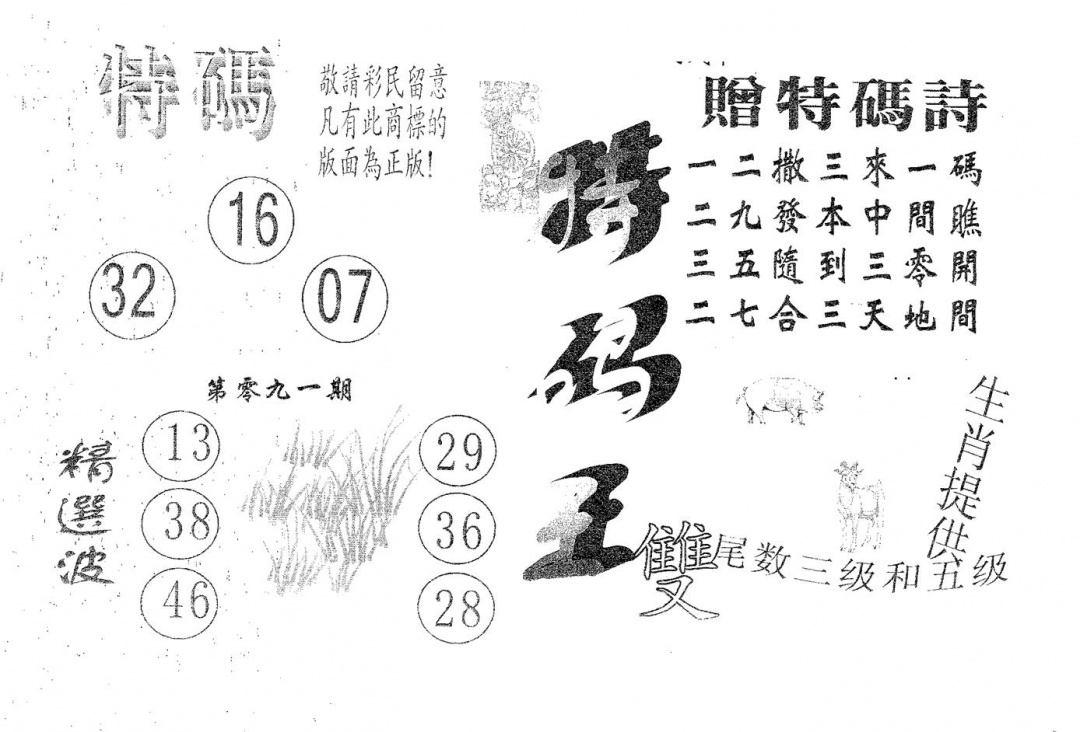 特碼
敬請彩民留意
凡有此商標的
版面為正版!
16
32
07
第零九一期
精選波
13
38
46
29
36
28
特码王
贈特碼詩
一二撒三來一碼
二九發本中間瞧
三五隨到三零開
二七合三天地間
生肖提供
雙尾数三级和五级